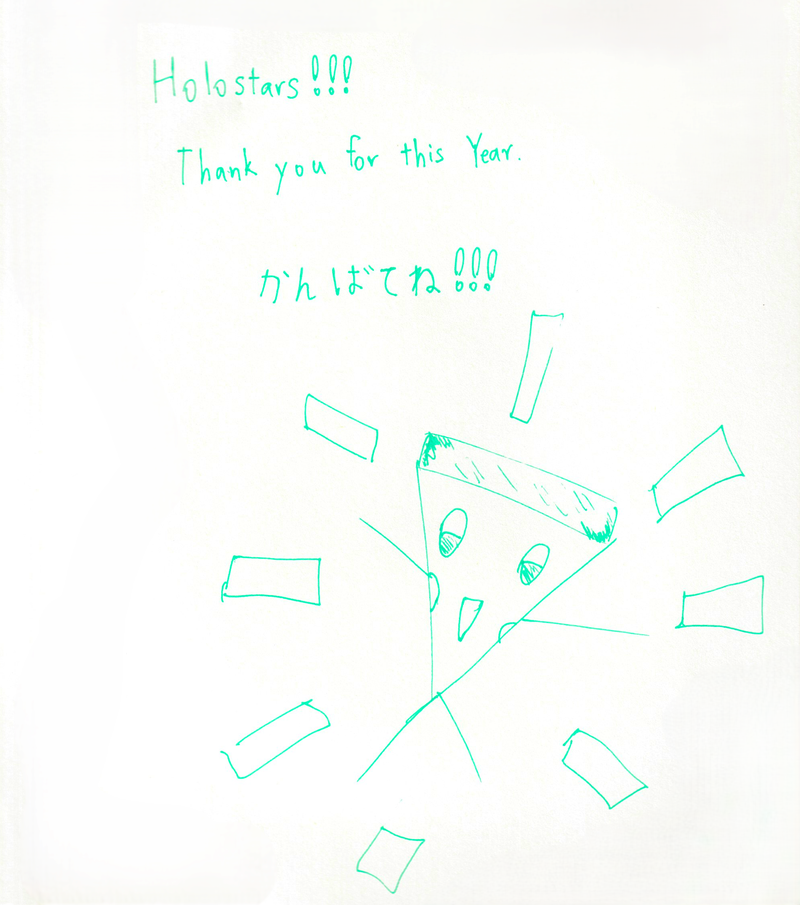 Holostars!!!
Thank you for this Year.
かんばてね!!!